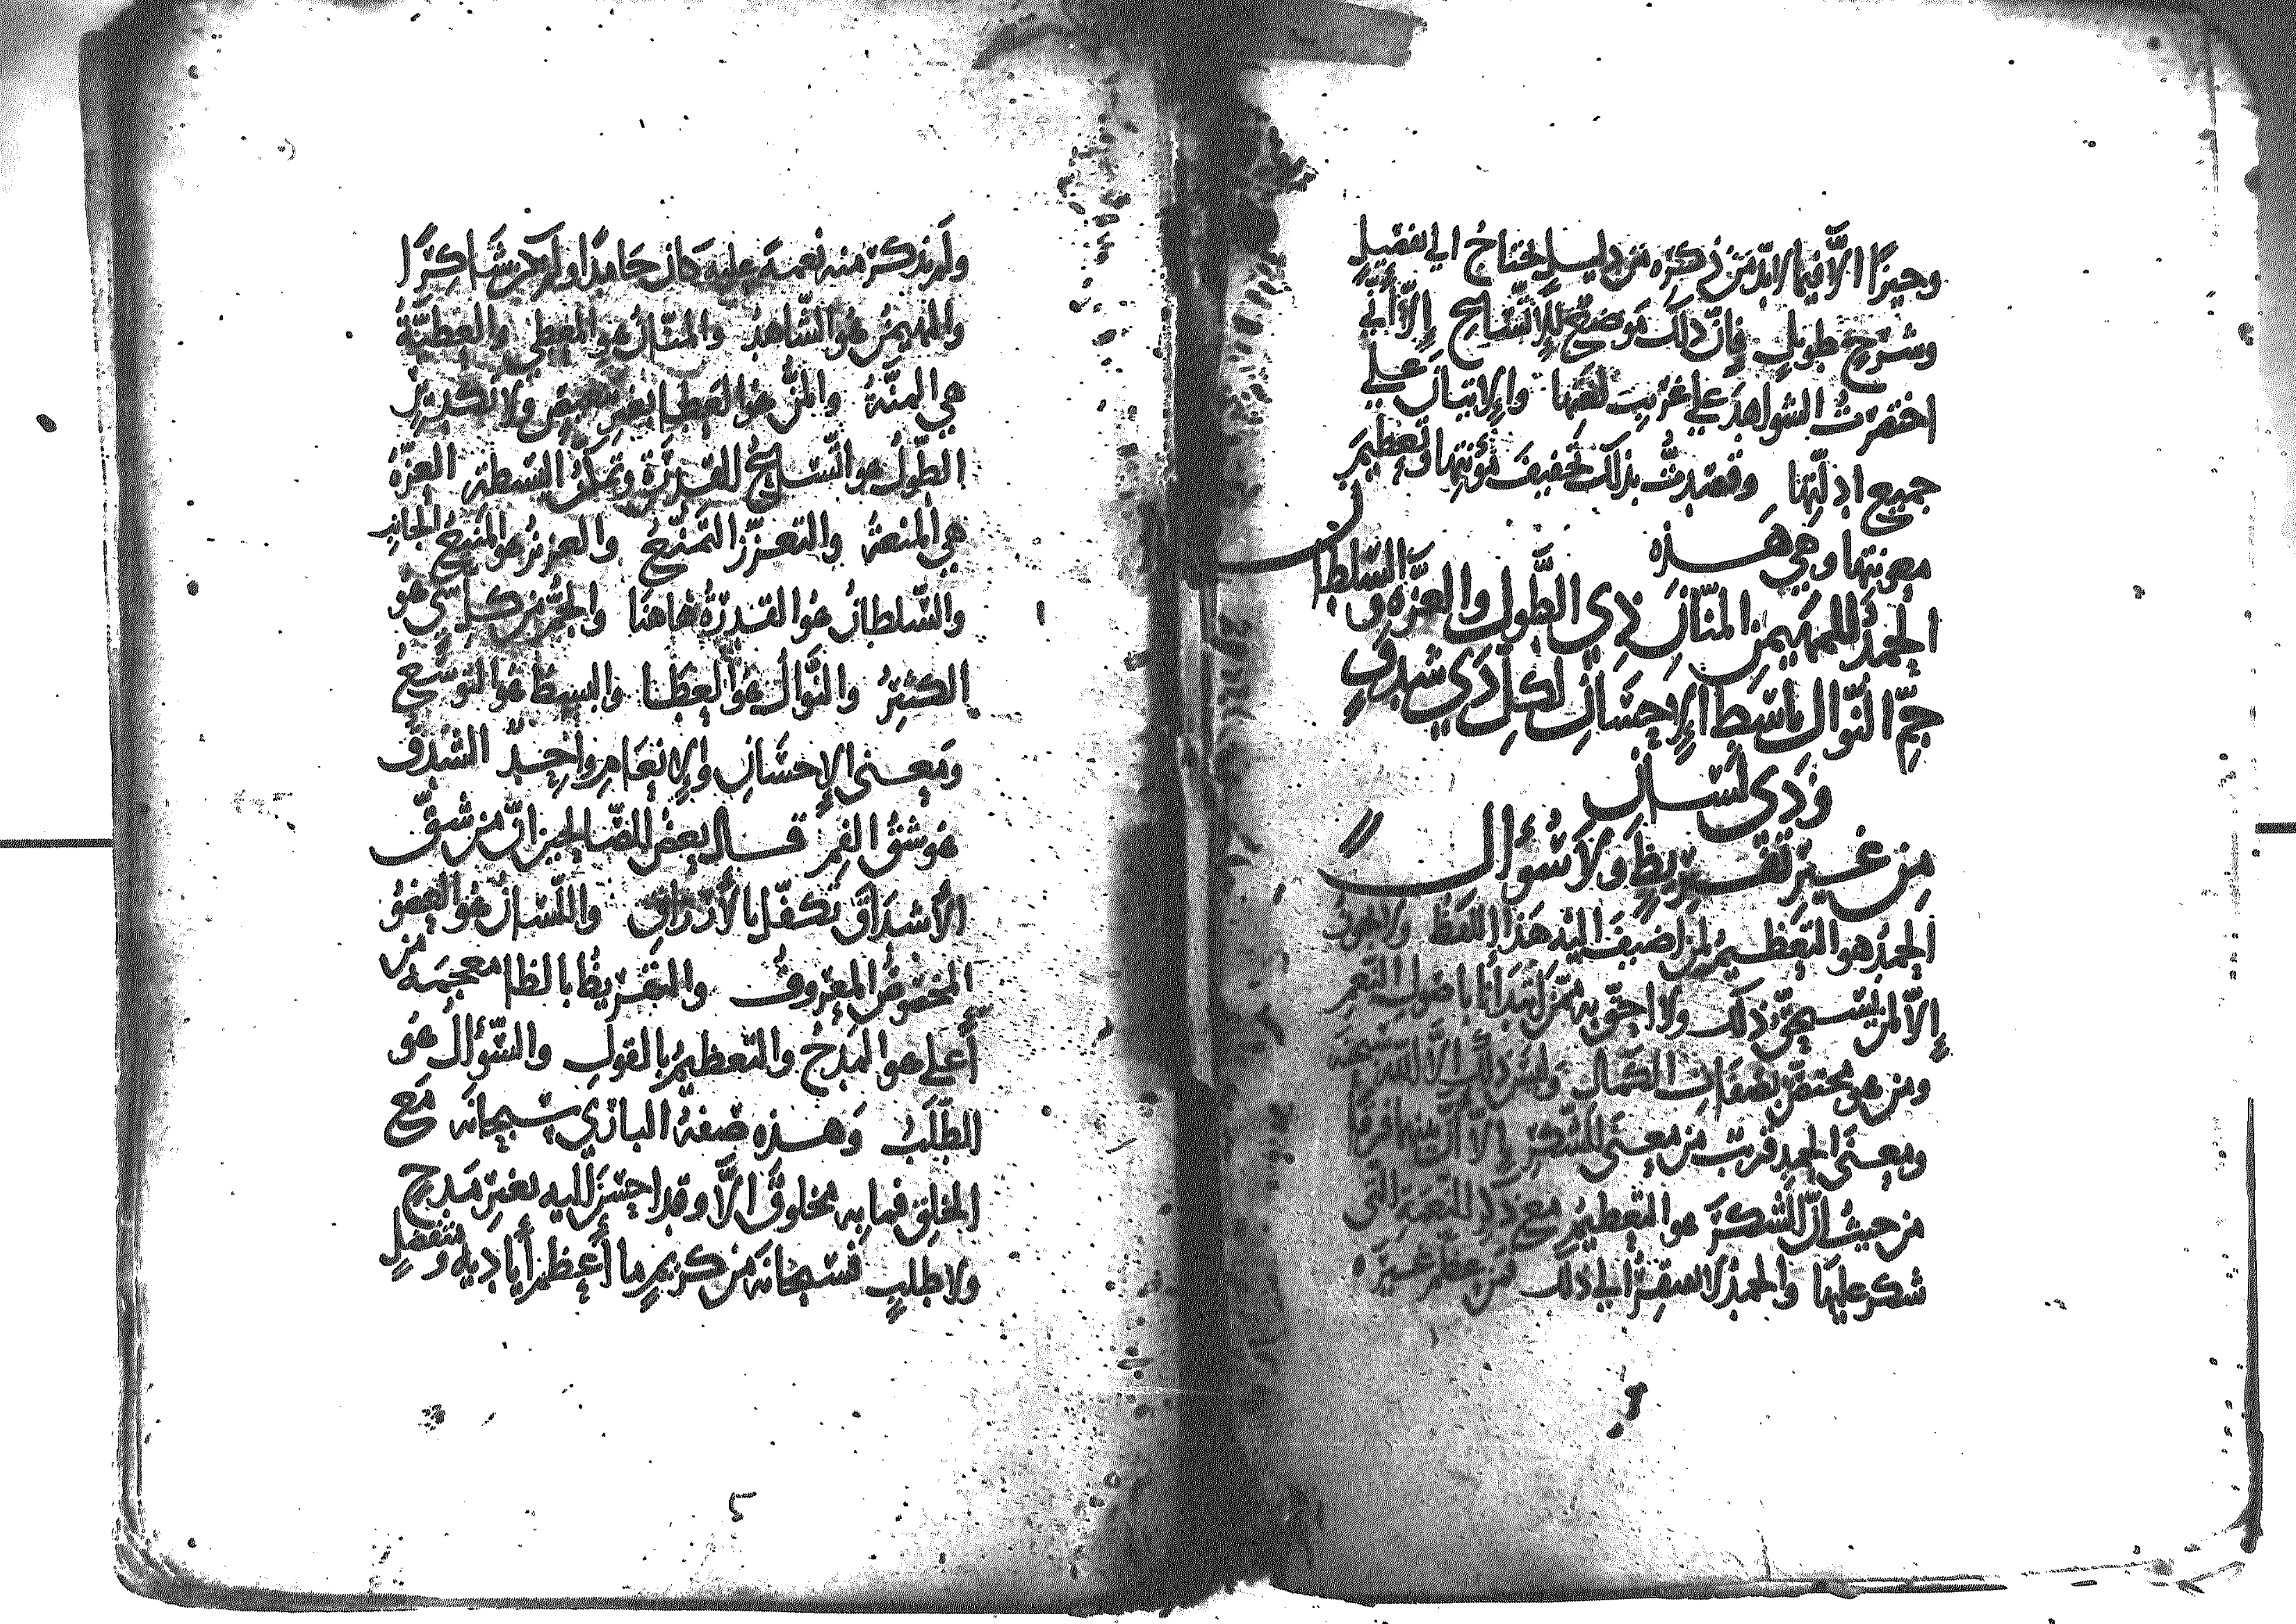 وجيزا الا فيما لابد من ذكره من دليل يحتاج الى تفصيل
وشرح طويل فان ذلك موضع للاتساع إلا أني
اختصرت الشواهد على غريب لغتها والاتيان على
جميع ادلتها وقصدت بذلك تخفيف مؤنتها وتعظيم
معونتها وهي هذه
الحمد للمهيمن المنان ذي الطول والعزة و السلطان
جم النوال باسط الإحسان لكل ذي شدق
وذي لسان
من غير تقريظ ولا سؤال
الحمد هو التعظيم لمن اضيف اليه هذا اللفظ
إلا لمن يستحق ذلك ولا احق به ممن ابتدانا باصول النعم
ومن هو مختص بصفات الكمال وليس ذلك إلا لله سبحنه
ومعنى الحمد قريب من معنى الشكر إلا أن بينهما فرقا
من حيث ان الشكر هو التعظيم مع ذكر النعمة التي
شكر عليها والحمد لا يفتقر الى ذلك فمن عظم غيره
ولم يذكر منه نعمة عليه كان حامدا ولم يكن شاكرا
والمهيمن هو الشاهد والمنان هو المعطي والعطية
هي المنة والمن هو العطا بغير ولا تكدير
الطول هو اتساع القدرة وتمكن البسطة العزة
هي المنعة والتعزز التمنع والعزيز هو المنيع الجانب
والسلطان هو القدرة هاهنا والجم من كل شي هو
الكثير والنوال هو العطا والبسط هو التوسيع
ومعنى الإحسان والإنعام واحد الشدق
هو شق الفم قال بعض الصالحين ان من شق
الأشداق تكفل بالأرزاق واللسان هو العضو
المخصوص المعروف والتقريظ بالظا معجمة من
أعلى هو المدح والتعظيم بالقول والسؤال هو
الطلب وهذه صفة الباري سبحانه مع
الخلق فما به مخلوق الا وقد احسن اليه بغير مدح
ولا طلب فسبحانه من كريم ما أعظم أياديه و متفضل